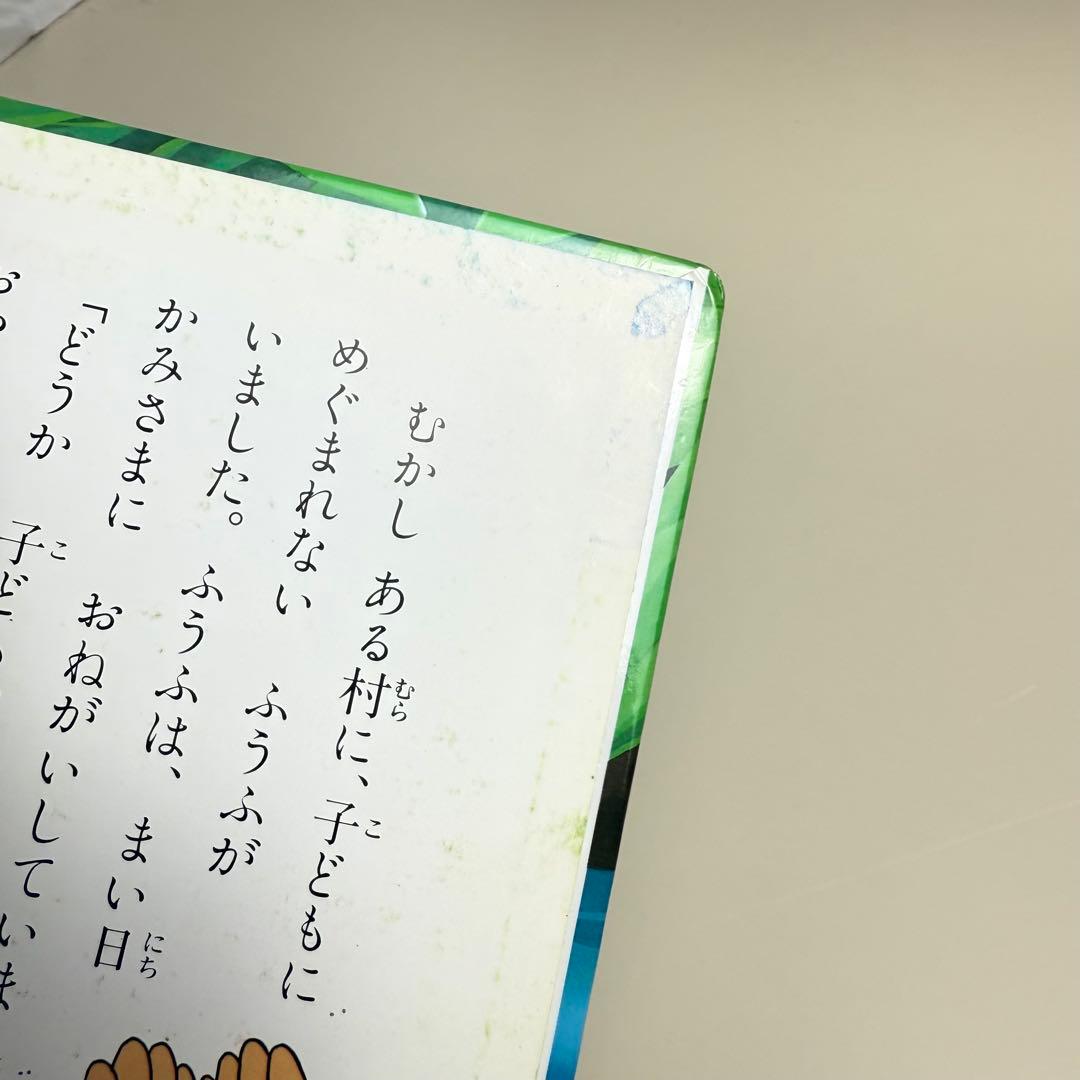 むかし ある村に、子どもに
めぐまれない ふうふが
いました。 ふうふは、 まい日
かみさまに おねがいしていま
「どうか 子ど